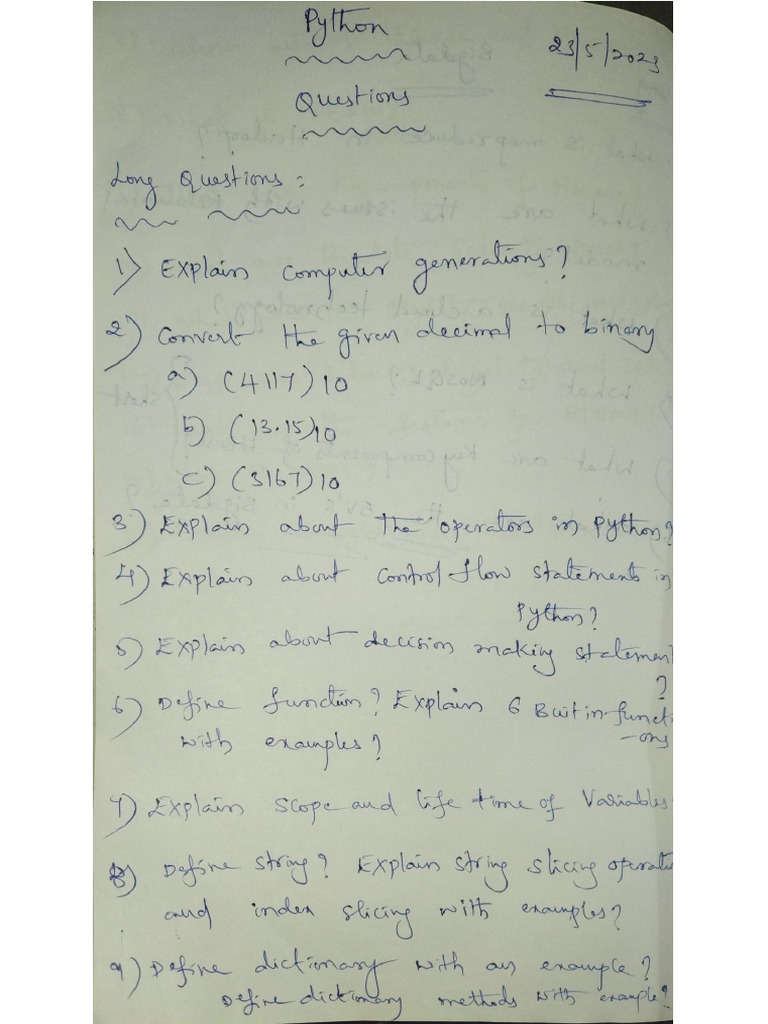 Python
23/5/2023
Questions
Long Questions:
1) Explain computer generations?
2) Convert the given decimal to binary
a) (4117)10
b) (13.15)10
c) (3167)10
3) Explain about the operators in python?
4) Explain about control flow statements in
Python?
5) Explain about decision making statement
?
6) Define function? Explain 6 Buitin-functi
-ons
with examples?
7) Explain scope and life time of Variables
8) Define string? Explain string slicing operati
and index slicing with examples?
9) Define dictionary with an example?
Define dictionary methods with example?